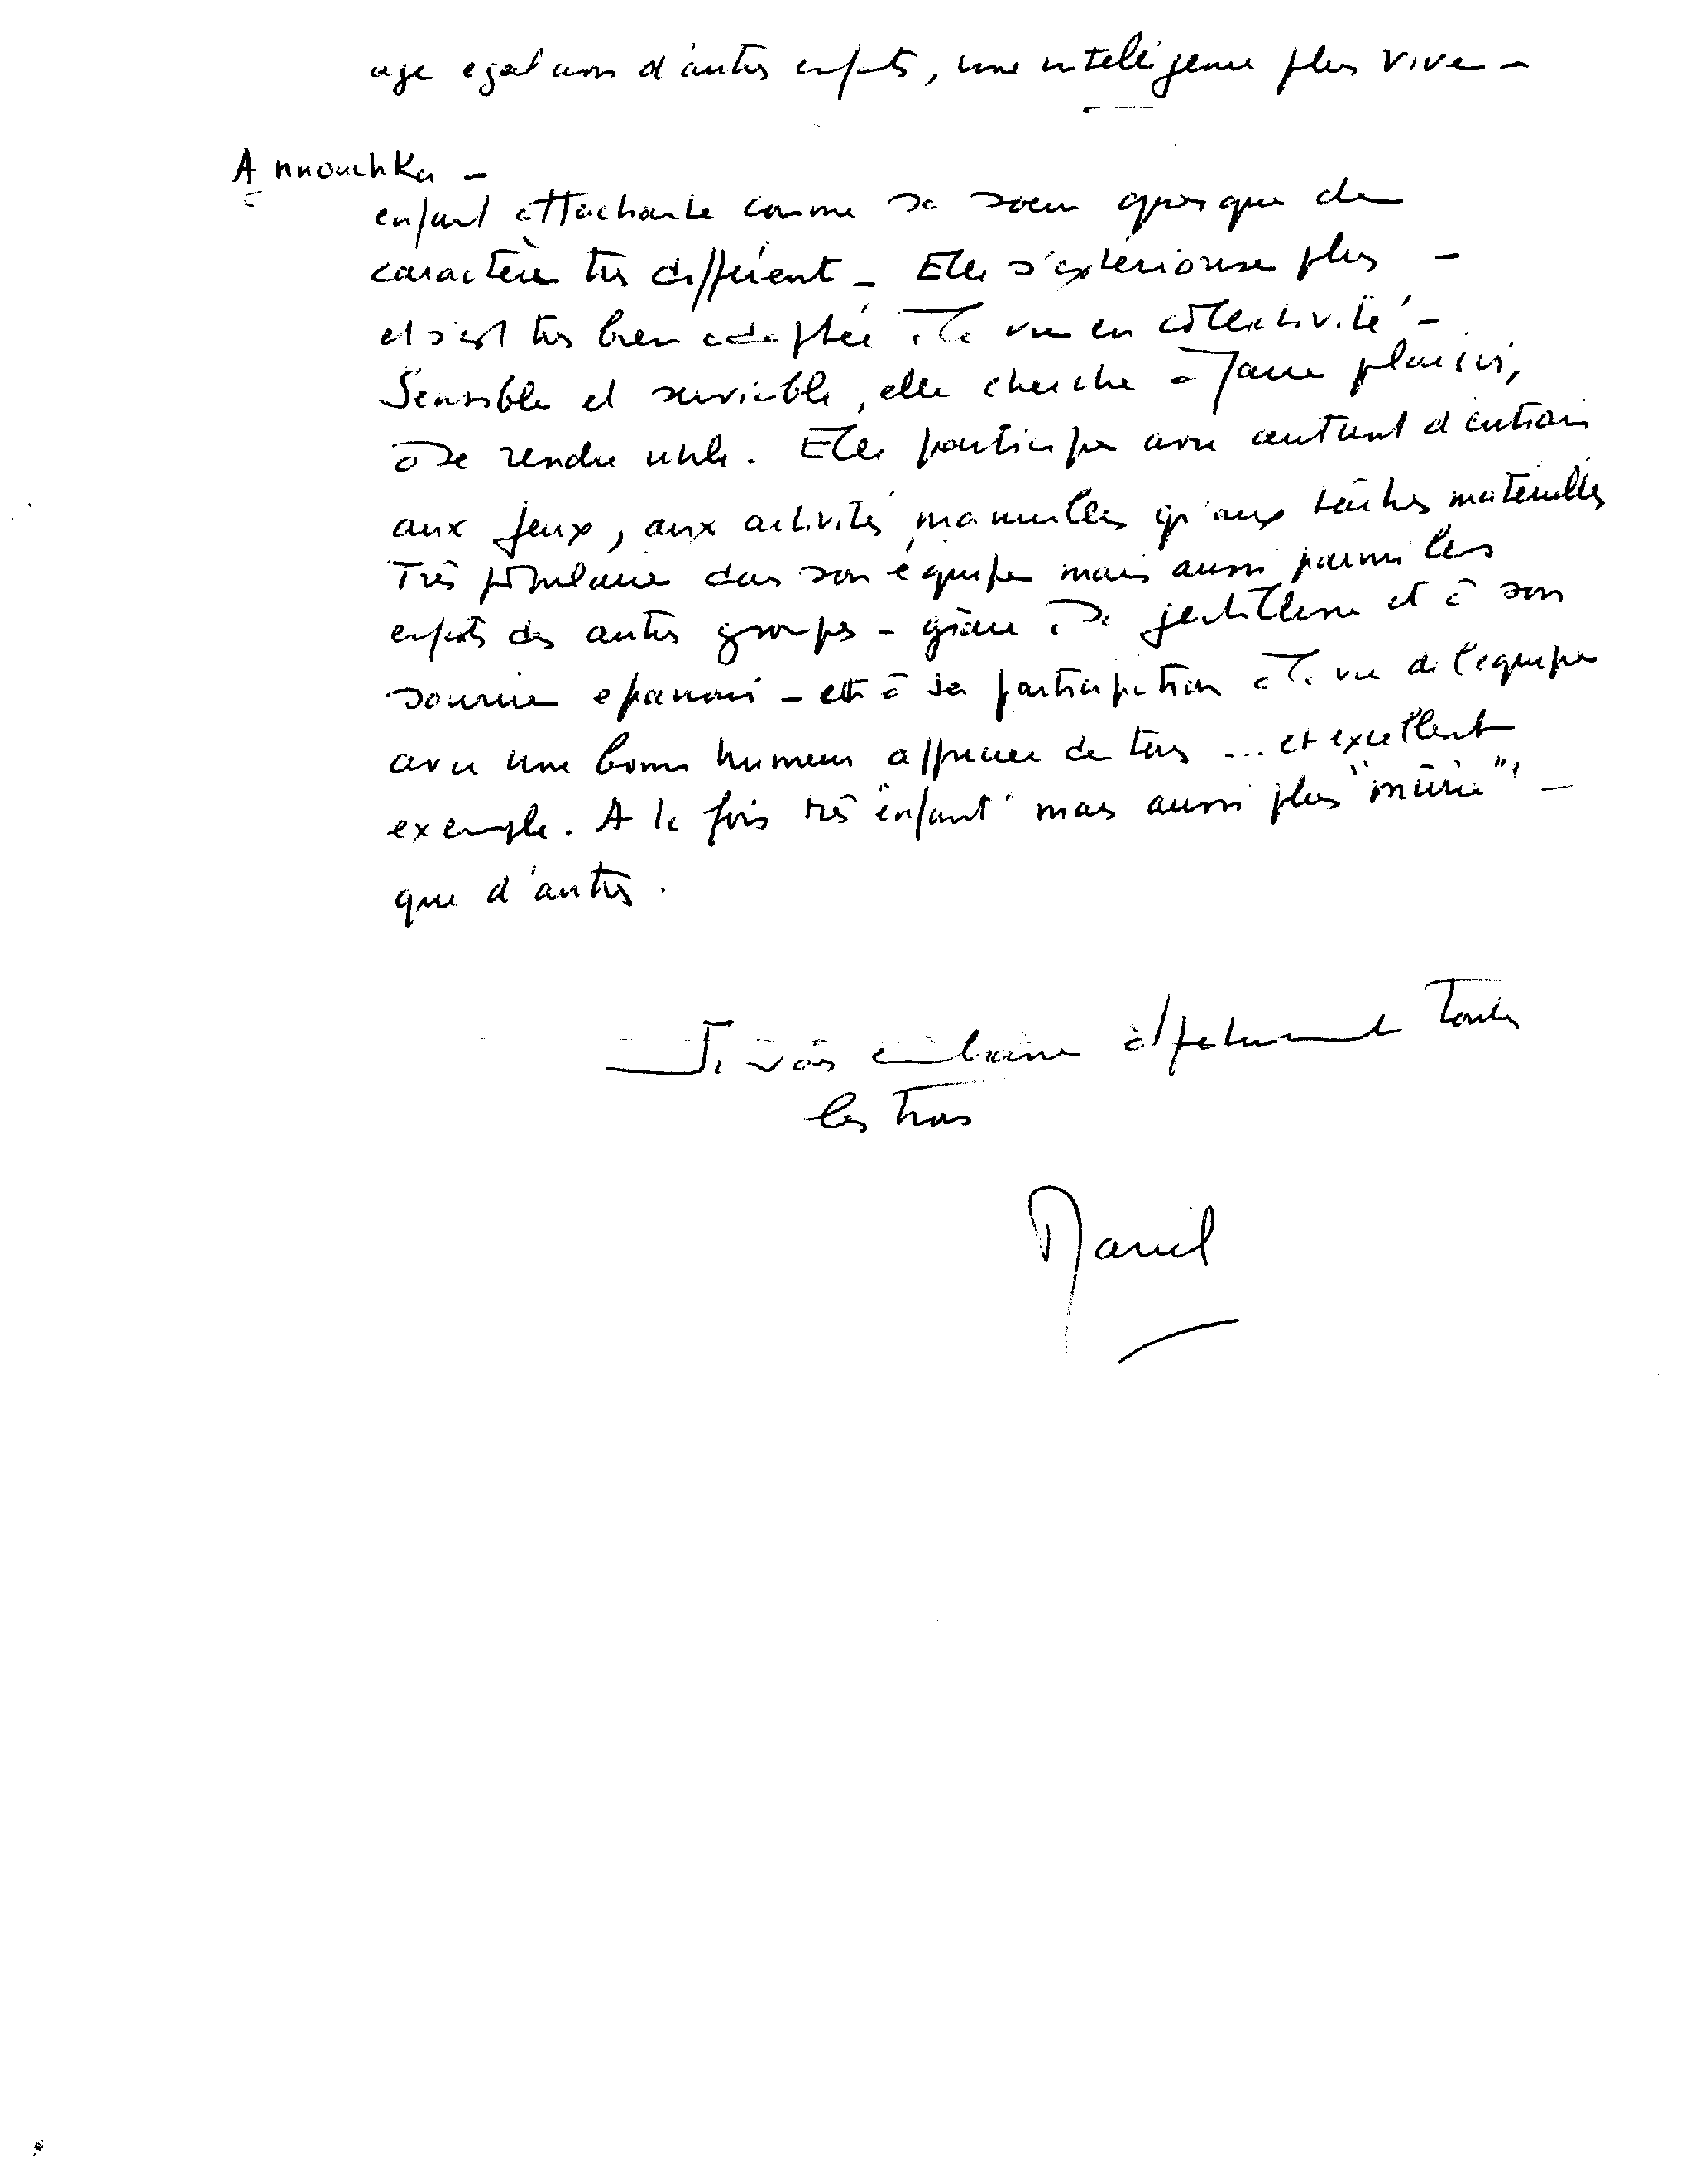 age egal avec d'autres enfants, une intelligence plus vive -
Annouchka -
enfant attachante comme sa soeur quoique de
caractère très différent - Elle s'extériorise plus -
et s'est très bien adaptée à la vie en collectivité -
Sensible et serviable, elle cherche à faire plaisir,
à se rendre utile. Elle participe avec autant d'entrain
aux jeux, aux activités manuelles qu'aux tâches matérielles
Très populaire dans son équipe mais aussi parmi les
enfants des autres groupes - grâce à sa gentillesse et à son
sourire epanoui - et à sa participation à la vie de l'equipe
avec une bonne humeur appréciée de tous ... et excellent
exemple. A la fois très "enfant" mais aussi plus "mûrie" -
que d'autres.
Je vous embrasse affectueusement toutes
les trois